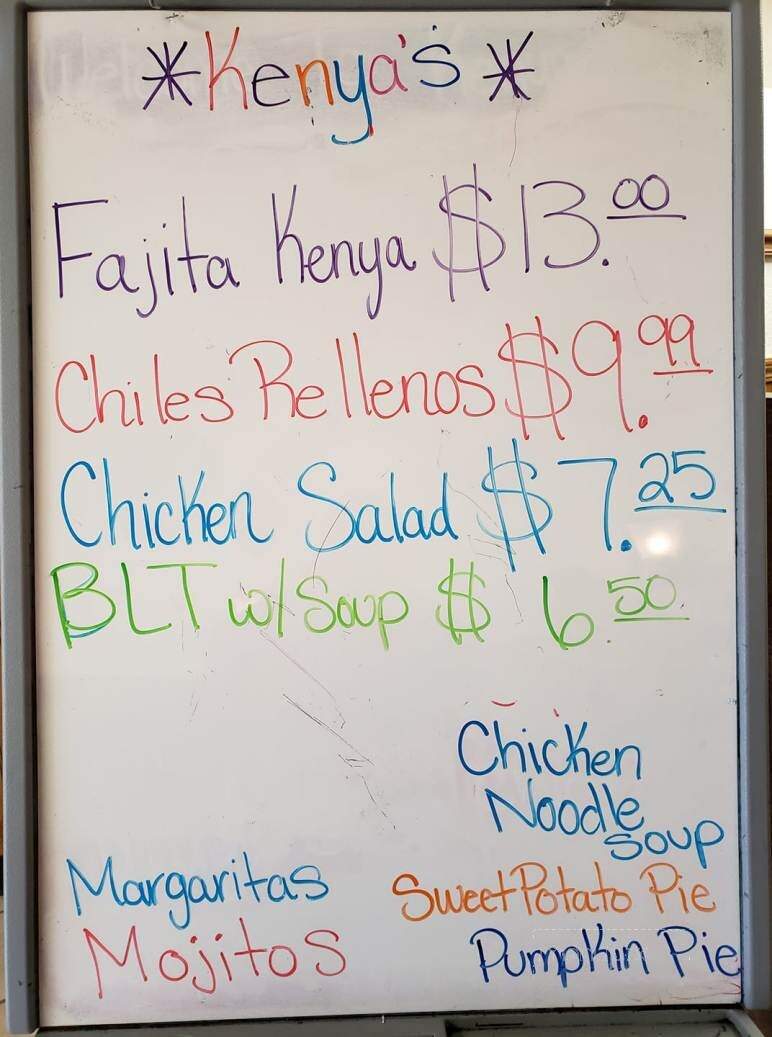 *Kenya's*
Fajita Kenya $13.00
Chiles Rellenos $9.99
Chicken Salad $7.25
BLT w/Soup $6.50
Chicken
Noodle
Soup
Margaritas
Sweet Potato Pie
Mojitos
Pumpkin Pie